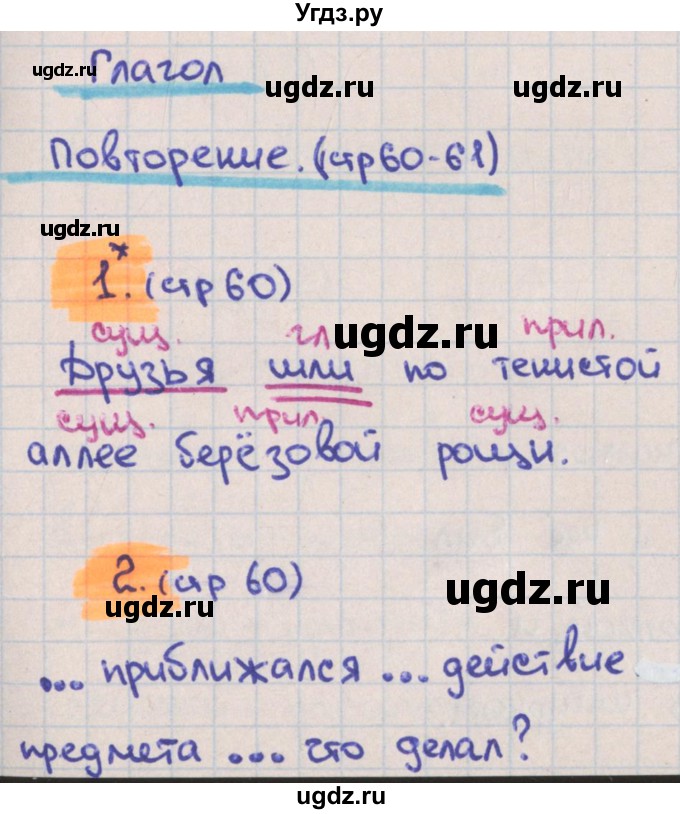 Угдз.ру
ugdz.ru
Глагол
ugdz.ru
ugdz.ru
Повторение. (стр 60-61)
ugdz.ru
1.* (стр 60)
сущ. гл. прил.
ugdz.ru
Друзья шли по тенистой
сущ. прил. сущ.
аллее берёзовой рощи.
2. (стр 60)
ugdz.ru
ugdz.ru
... приближался ... действие
предмета ... что делал?
ugdz.ru
ugdz.ru